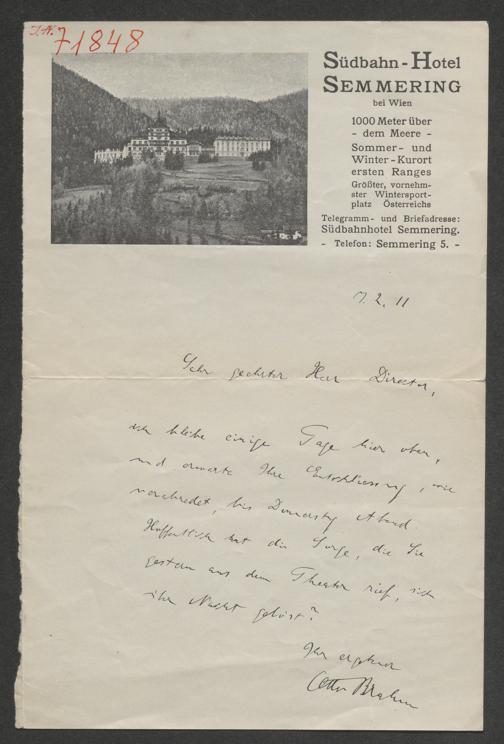 J.N. 71848
Südbahn-Hotel
SEMMERING
bei Wien
1000 Meter über
- dem Meere -
Sommer- und
Winter-Kurort
ersten Ranges
Größter, vornehm-
ster Wintersport-
platz Österreichs
Telegramm- und Briefadresse:
Südbahnhotel Semmering.
- Telefon: Semmering 5. -
7. 2. 11
Sehr geehrter Herr Director,
ich bleibe einige Tage hier oben,
und erwarte Ihre Entschliessung, wie
verabredet, bis Donnerstag Abend.
Hoffentlich hat die Sorge, die Sie
gestern aus dem Theater rief, sich
über Nacht gelöst?
Ihr ergebener
Otto Brahm